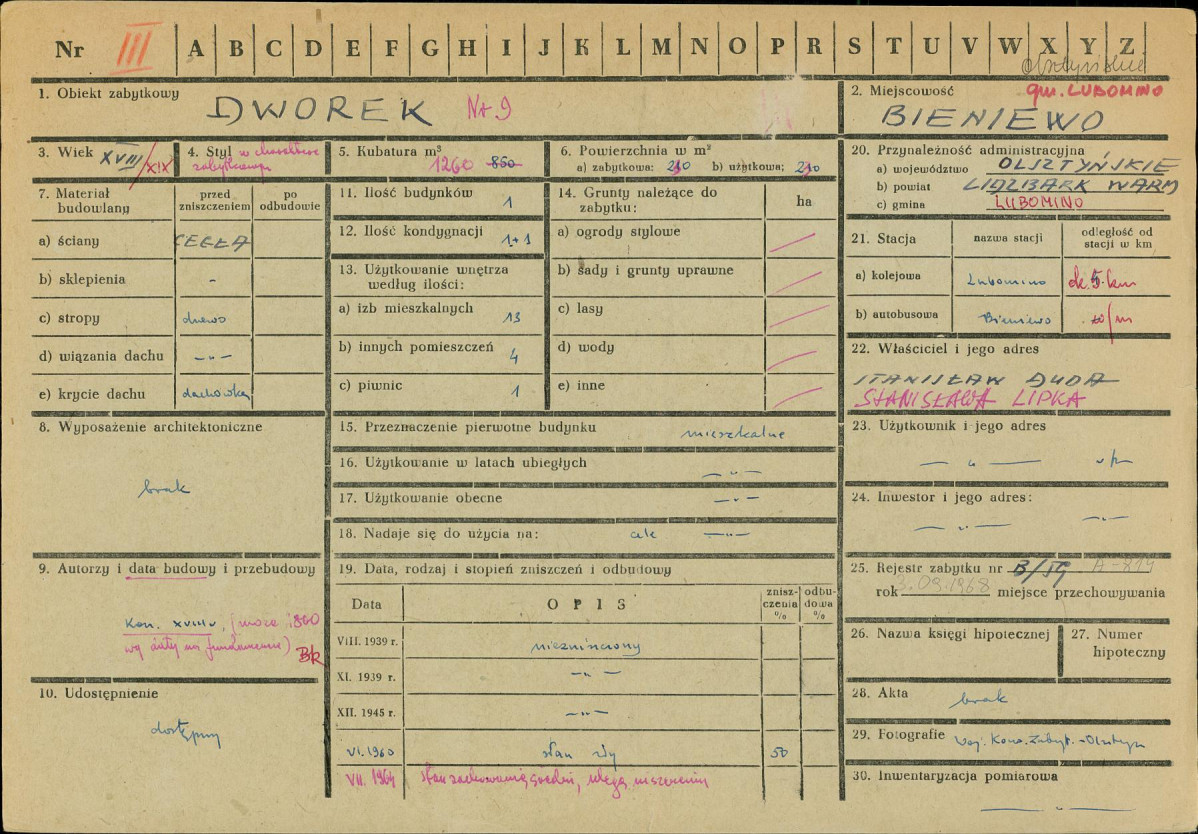 Nr III A B C D E F G H I J K L M N O P R S T U V W X Y Z
olsztyńskie
1. Obiekt zabytkowy
DWOREK Nr 9
2. Miejscowość gm. LUBOMINO
BIENIEWO
3. Wiek XVIII/XIX
4. Styl w charakterze
zabytkowym
5. Kubatura m³
1260 850
6. Powierzchnia w m²
a) zabytkowa: 210 b) użytkowa: 210
7. Materiał budowlany
przed zniszczeniem
po odbudowie
a) ściany CEGŁA
b) sklepienia -
c) stropy drewo
d) wiązania dachu -"-
e) krycie dachu dachówka
8. Wyposażenie architektoniczne
brak
9. Autorzy i data budowy i przebudowy
Kon. XVIII w, (może 1860
wg daty na fundamencie) BK
10. Udostępnienie
dostępny
11. Ilość budynków 1
12. Ilość kondygnacji 1+1
13. Użytkowanie wnętrza
według ilości:
a) izb mieszkalnych 13
b) innych pomieszczeń 4
c) piwnic 1
14. Grunty należące do
zabytku: ha
a) ogrody stylowe
b) sady i grunty uprawne
c) lasy
d) wody
e) inne
15. Przeznaczenie pierwotne budynku mieszkalne
16. Użytkowanie w latach ubiegłych -"-
17. Użytkowanie obecne -"-
18. Nadaje się do użycia na: cele -"-
19. Data, rodzaj i stopień zniszczeń i odbudowy
Data
OPIS
znisz-
czenia
%
odbu-
dowa
%
VIII. 1939 r. niezniszczony
XI. 1939 r. -"-
XII. 1945 r. -"-
VI. 1960 stan zły 50
VII. 1964 stan zachowania średni, ulega niszczeniu
20. Przynależność administracyjna
a) województwo OLSZTYŃSKIE
b) powiat LIDZBARK WARM
c) gmina LUBOMINO
21. Stacja
nazwa stacji
odległość od
stacji w km
a) kolejowa Lubomino ok. 5 km
b) autobusowa Bieniewo
22. Właściciel i jego adres
STANISŁAW DUDA
STANISŁAWA LIPKA
23. Użytkownik i jego adres
-"- w/m
24. Inwestor i jego adres:
-"- -"-
25. Rejestr zabytku nr B/59 A-819
rok 3.09.1968 miejsce przechowywania
26. Nazwa księgi hipotecznej
27. Numer
hipoteczny
28. Akta brak
29. Fotografie Woj. Kons. Zabyt. - Olsztyn
30. Inwentaryzacja pomiarowa
-"-